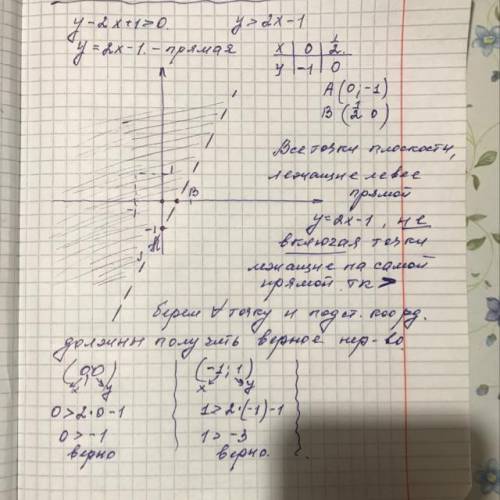 y-2x+1>0. y>2x-1
y=2x-1. - прямая
x | 0 | 1/2
y | -1 | 0
A (0; -1)
B (1/2 0)
Все точки плоскости,
лежащие левее
прямой
y=2x-1, не
включая точки
лежащие на самой
прямой. тк >
1
B
-1
-1
A
берем ∀ точку и подст. коорд.
должны получить верное нер-во.
(0;0) (-1; 1)
x y x y
0>2·0-1 1>2·(-1)-1
0>-1 1>-3
верно верно.